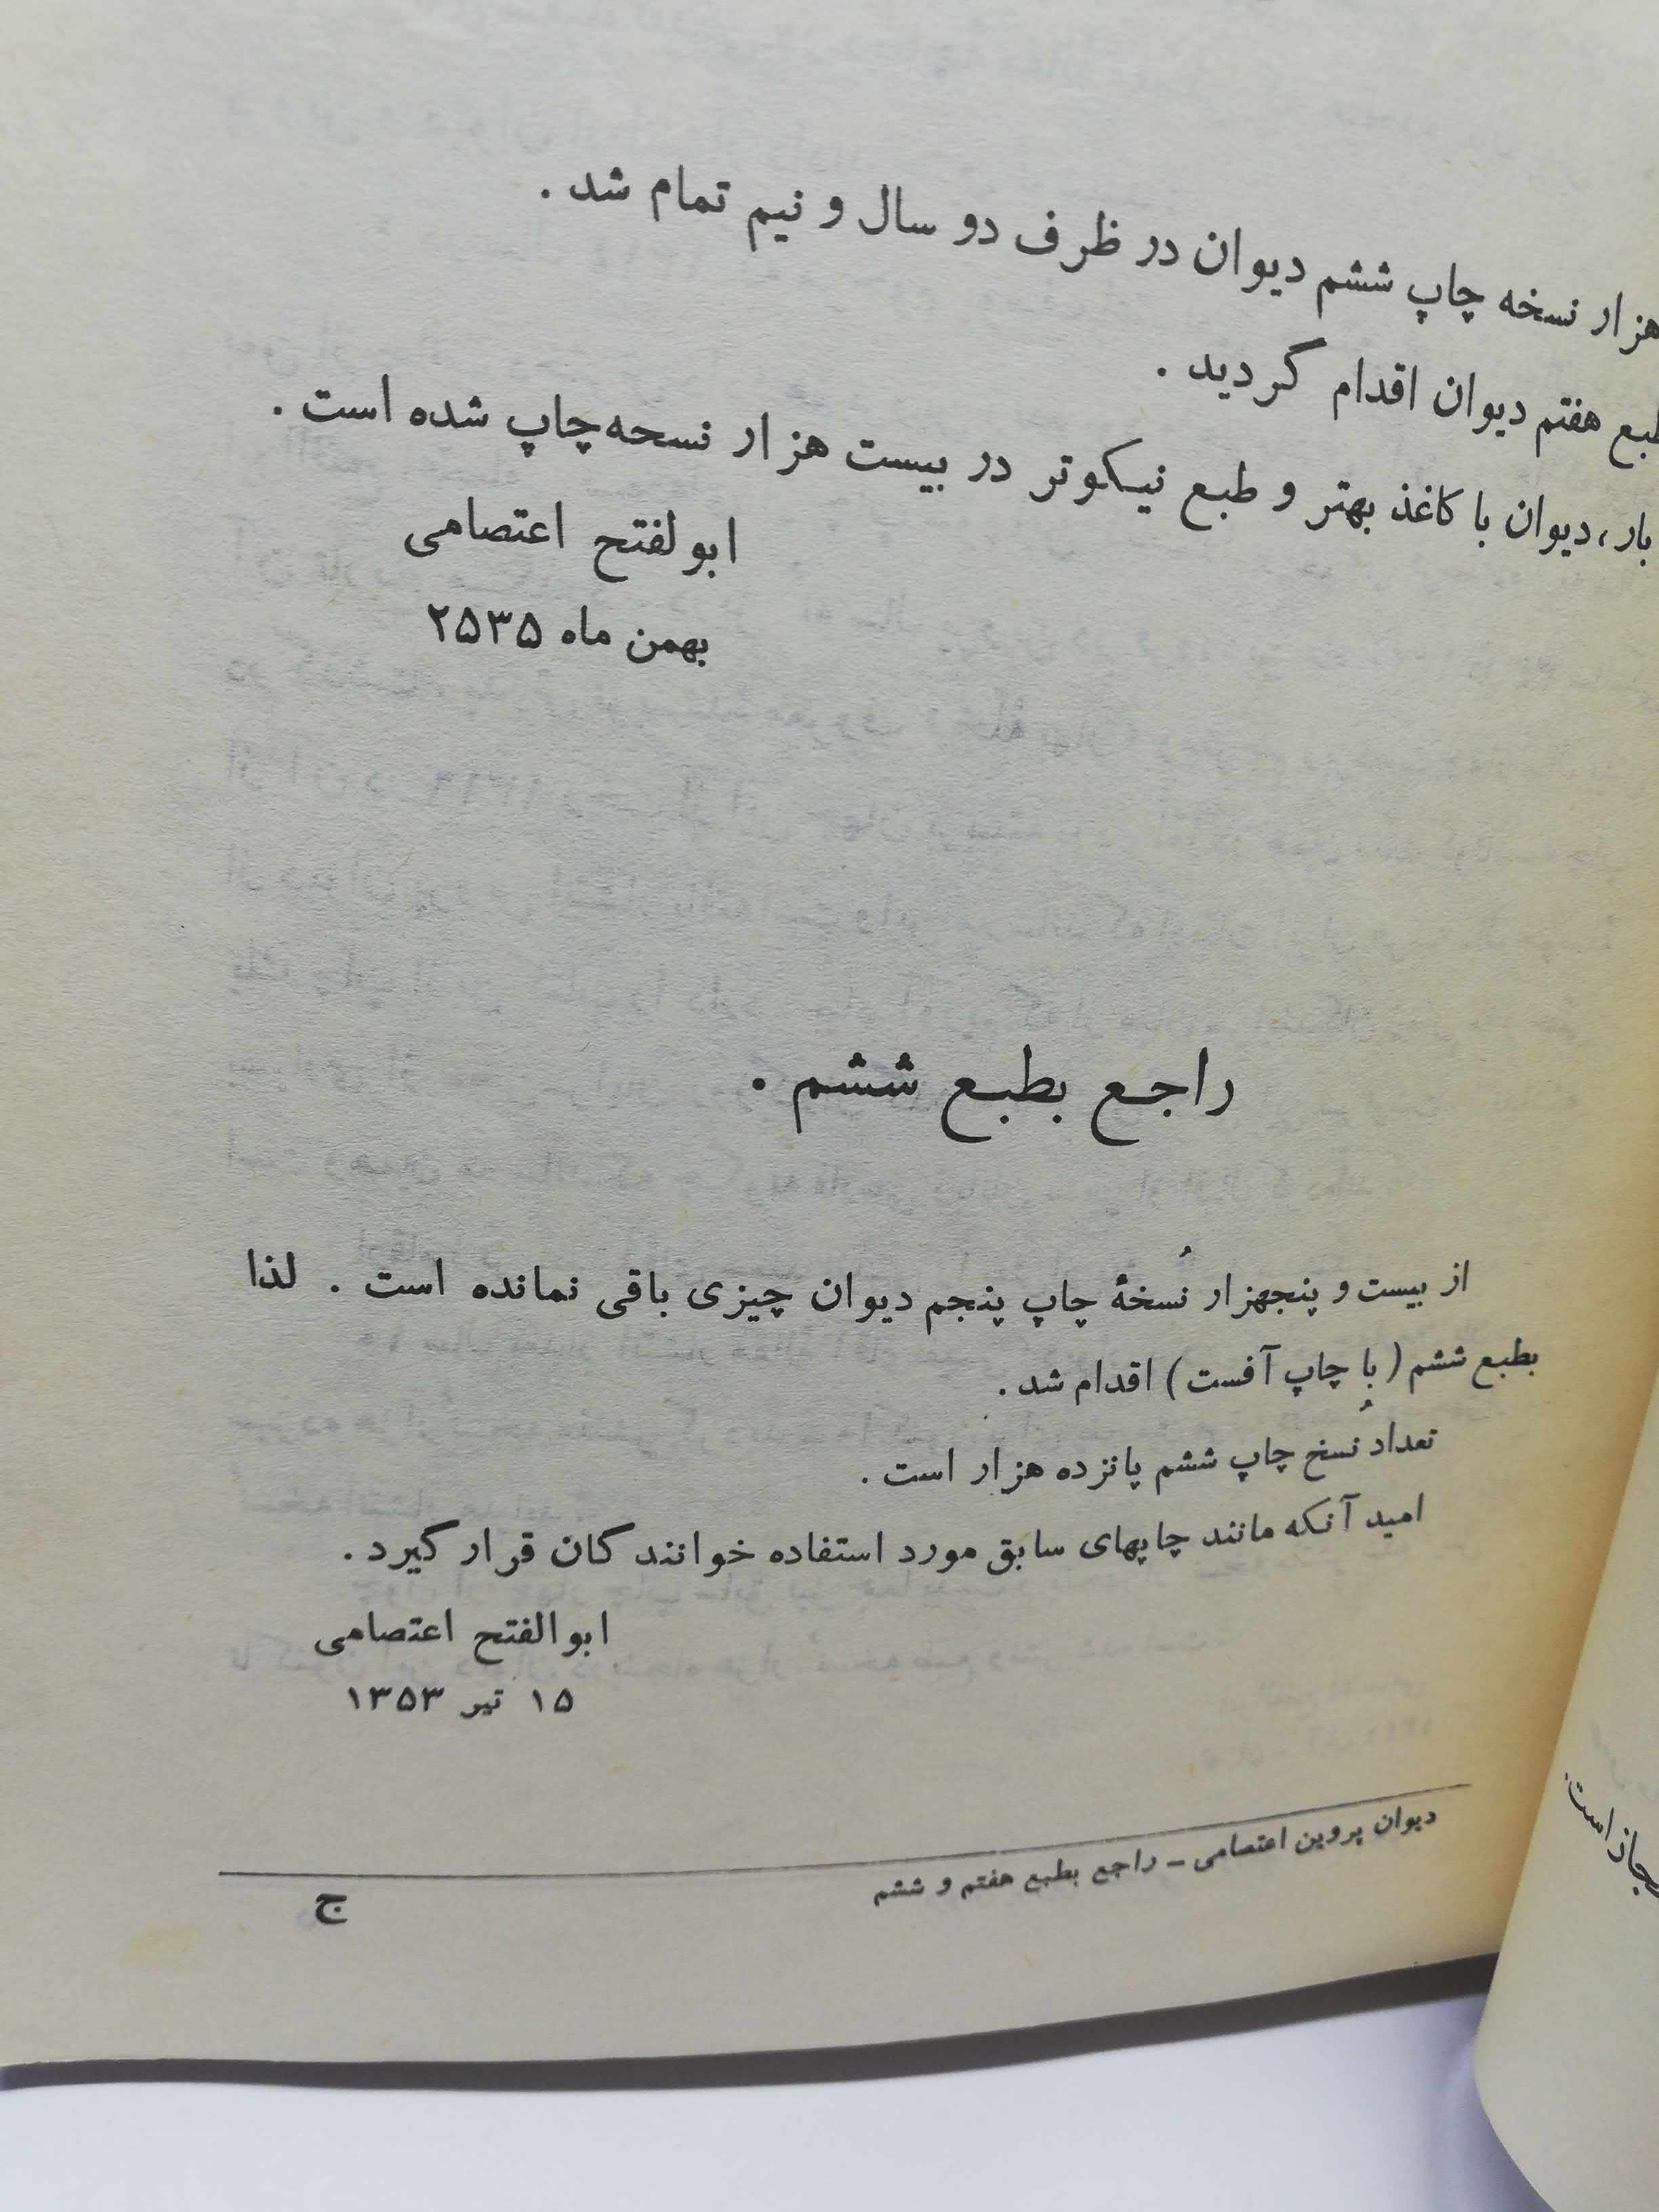 هزار نسخه چاپ ششم دیوان در ظرف دو سال و نیم تمام شد .
طبع هفتم دیوان اقدام گردید .
بار، دیوان با کاغذ بهتر و طبع نیکوتر در بیست هزار نسحه چاپ شده است .
ابولفتح اعتصامی
بهمن ماه ۲۵۳۵
راجع بطبع ششم .
از بیست و پنجهزار نُسخهٔ چاپ پنجم دیوان چیزی باقی نمانده است . لذا
بطبع ششم ( با چاپ آفست ) اقدام شد .
تعداد نُسخ چاپ ششم پانزده هزار است .
امید آنکه مانند چاپهای سابق مورد استفاده خوانندگان قرار گیرد .
ابوالفتح اعتصامی
۱۵ تیر ۱۳۵۳
دیوان پروین اعتصامی – راجع بطبع هفتم و ششم
ج
است